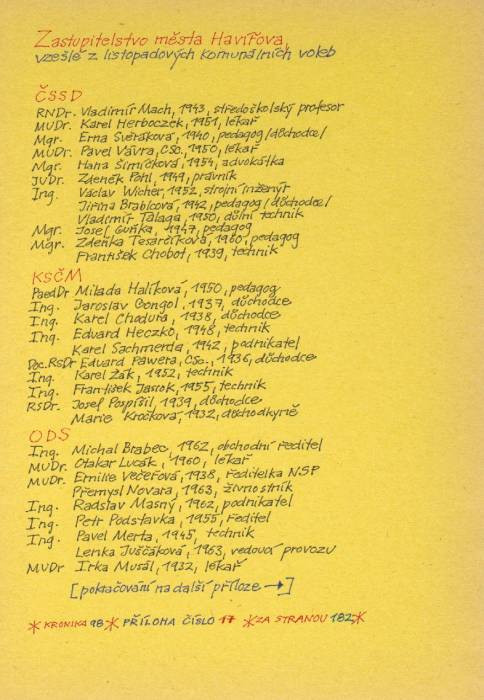 Zastupitelstvo města Havířova,
vzešlé z listopadových komunálních voleb
ČSSD
RNDr. Vladimír Mach, 1943, středoškolský profesor
MUDr. Karel Herboczek, 1951, lékař
Mgr. Erna Svěráková, 1940, pedagog/důchodce/
MUDr. Pavel Vávra, CSc. 1950, lékař
Mgr. Hana Šimíčková, 1954, advokátka
JUDr. Zdeněk Pohl, 1949, právník
Ing. Václav Wicher, 1952, strojní inženýr
Jiřina Brablcová, 1942, pedagog/důchodce/
Vladimír Talaga, 1950, důlní technik
Mgr. Josef Guňka, 1947, pedagog
Mgr. Zdeňka Tesarčíková, 1960, pedagog
František Chobot, 1939, technik
KSČM
PaedDr Milada Halíková, 1950, pedagog
Ing. Jaroslav Gongol, 1937, důchodce
Ing. Karel Chodura, 1938, důchodce
Ing. Eduard Heczko, 1948, technik
Karel Sachmerda, 1942, podnikatel
Doc. RSDr Eduard Pawera, CSc., 1936, důchodce
Ing. Karel Žák, 1952, technik
Ing. František Jasiok, 1955, technik
RSDr. Josef Pospíšil, 1939, důchodce
Marie Kročková, 1932, důchodkyně
ODS
Ing. Michal Brabec, 1962, obchodní ředitel
MUDr. Otakar Lucák, 1960, lékař
MUDr. Emilie Večeřová, 1938, ředitelka NSP
Přemysl Novara, 1963, živnostník
Ing. Radslav Masný, 1962, podnikatel
Ing. Petr Podstavka, 1955, ředitel
Ing. Pavel Merta, 1945, technik
Lenka Juščáková, 1963, vedoucí provozu
MUDr Irka Musál, 1932, lékař
[pokračování na další příloze →]
* KRONIKA 98 * PŘÍLOHA ČÍSLO 17 * ZA STRANOU 182 *